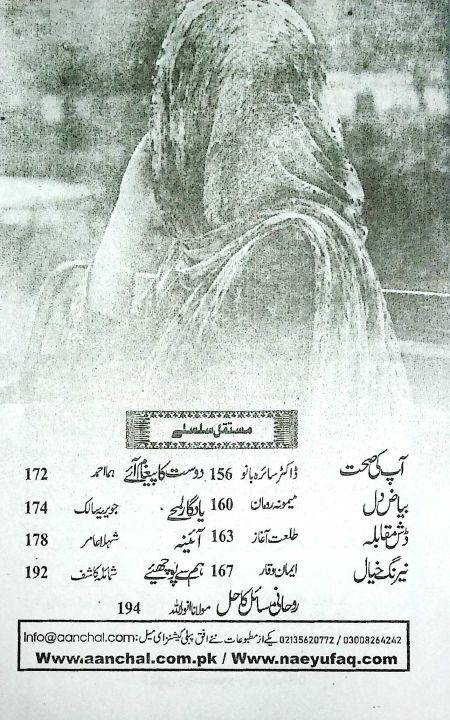 مستقل سلسلے
آپ کی صحت ڈاکٹر سائرہ بانو 156 دوست کا پیغام آئے ہما احمد 172
بیاض دل میمونہ رومان 160 یادگار لمحے جویریہ سالک 174
ڈش مقابلہ طلعت آغاز 163 آئینہ شہلا عامر 178
نیرنگ خیال ایمان وقار 167 ہم سے پوچھئے شمائلہ کاشف 192
روحانی مسائل کا حل مولانا انوار اللہ 194
02135620772 / 03008264242 یکے از مطبوعات نئے افق پبلی کیشنز ای میل: Info@aanchal.com
Www.aanchal.com.pk / Www.naeyufaq.com